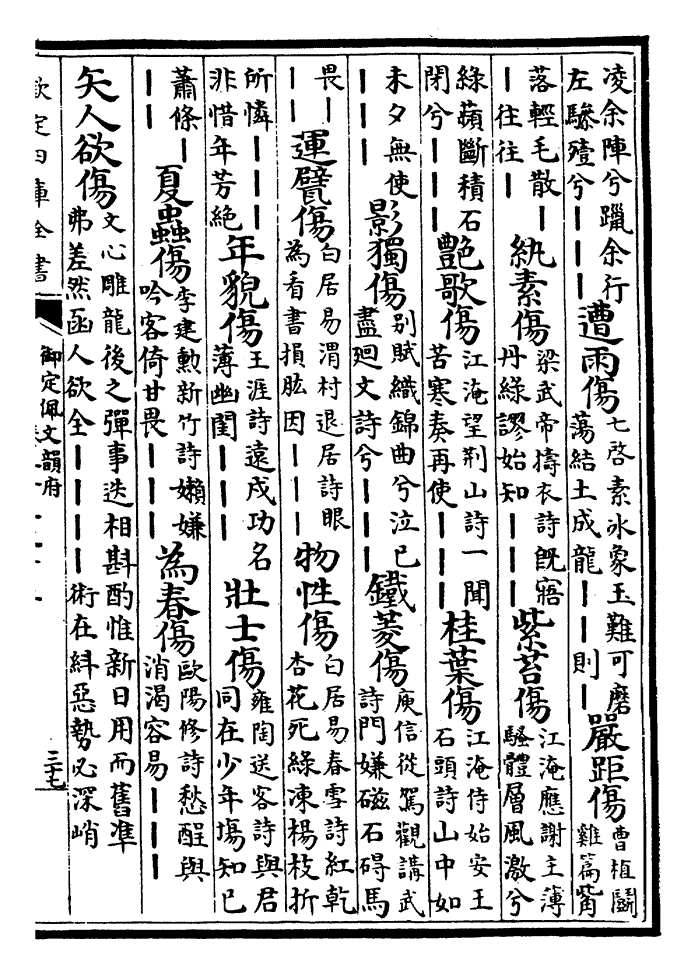 凌余陣兮躐余行
左驂殪兮｜｜｜
遭雨傷
七啓素冰象玉難可磨
蕩結土成龍｜｜則｜
嚴距傷
曹植鬭
雞篇觜
落輕毛散｜
｜往往｜
紈素傷
梁武帝擣衣詩既寤
丹緑謬始知｜｜｜
紫苔傷
江淹應謝主薄
騷體層風激兮
綠蘋斷積石
閉兮｜｜｜
艶歌傷
江淹望荆山詩一聞
苦寒奏再使｜｜｜
桂葉傷
江淹侍始安王
石頭詩山中如
未夕無使
｜｜｜
影獨傷
别賦織錦曲兮泣已
盡廻文詩兮｜｜｜
鐵菱傷
庾信從駕觀講武
詩門嫌磁石碍馬
畏｜
｜｜
運甓傷
白居易渭村退居詩眼
為看書損肱因｜｜｜
物性傷
白居易春雪詩紅乾
杏花死緑凍楊枝折
所憐｜｜｜
非惜年芳絶
年貌傷
王涯詩遠戍功名
薄幽閨｜｜｜
壯士傷
雍陶送客詩與君
同在少年塲知已
蕭條｜
｜｜
夏蟲傷
李建勲新竹詩嬾嫌
吟客倚甘畏｜｜｜
為春傷
歐陽修詩愁醒與
消渴容易｜｜｜
矢人欲傷
文心雕龍後之彈事迭相斟酌惟新日用而舊準
弗差然函人欲全｜｜｜｜術在糾惡勢必深峭
欽定四庫全書
御定佩文韻府
三十七